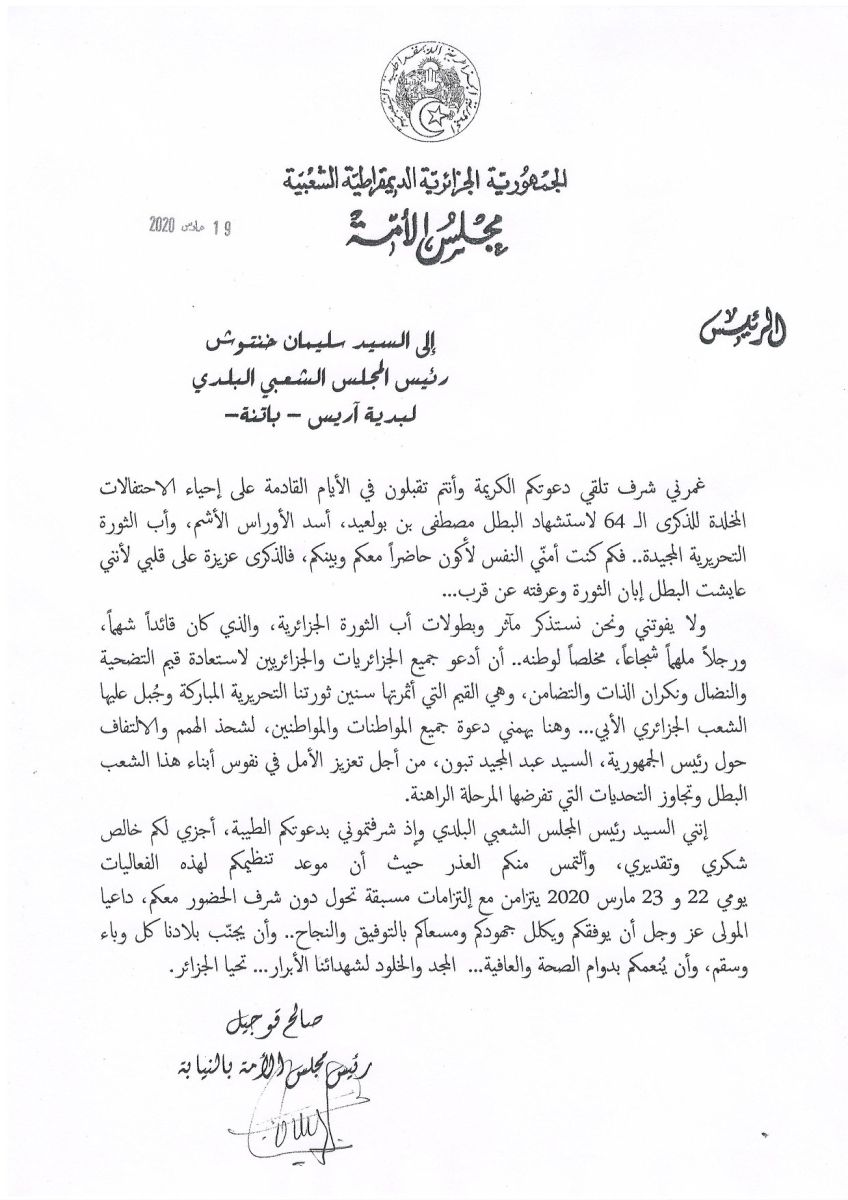 الجمهورية الجزائرية الديمقراطية الشعبية
الجمهوريّة الجزائريّة الديمقراطيّة الشعبيّة
مجلس الأمّة
19 مارس 2020
الرئيس
إلى السيد سليمان خنتوش
رئيس المجلس الشعبي البلدي
لبدية آريس – باتنة–
غمرني شرف تلقي دعوتكم الكريمة وأنتم تقبلون في الأيام القادمة على إحياء الاحتفالات
المخلدة للذكرى الـ 64 لاستشهاد البطل مصطفى بن بولعيد، أسد الأوراس الأشم، وأب الثورة
التحريرية المجيدة.. فكم كنت أمنّي النفس لأكون حاضراً معكم وبينكم، فالذكرى عزيزة على قلبي لأنني
عايشت البطل إبان الثورة وعرفته عن قرب...
ولا يفوتني ونحن نستذكر مآثر وبطولات أب الثورة الجزائرية، والذي كان قائداً شهماً،
ورجلاً ملهماً شجاعاً، مخلصاً لوطنه.. أن أدعو جميع الجزائريات والجزائريين لاستعادة قيم التضحية
والنضال ونكران الذات والتضامن، وهي القيم التي أثمرتها سنين ثورتنا التحريرية المباركة وجُبل عليها
الشعب الجزائري الأبي... وهنا يهمني دعوة جميع المواطنات والمواطنين، لشحذ الهمم والالتفاف
حول رئيس الجمهورية، السيد عبد المجيد تبون، من أجل تعزيز الأمل في نفوس أبناء هذا الشعب
البطل وتجاوز التحديات التي تفرضها المرحلة الراهنة.
إنني السيد رئيس المجلس الشعبي البلدي وإذ شرفتموني بدعوتكم الطيبة، أجزي لكم خالص
شكري وتقديري، وألتمس منكم العذر حيث أن موعد تنظيمكم لهذه الفعاليات
يومي 22 و 23 مارس 2020 يتزامن مع إلتزامات مسبقة تحول دون شرف الحضور معكم، داعيا
المولى عز وجل أن يوفقكم ويكلل جهودكم ومسعاكم بالتوفيق والنجاح.. وأن يجنّب بلادنا كل وباء
وسقم، وأن يُنعمكم بدوام الصحة والعافية... المجد والخلود لشهدائنا الأبرار... تحيا الجزائر.
صالح قوجيل
رئيس مجلس الأمة بالنيابة